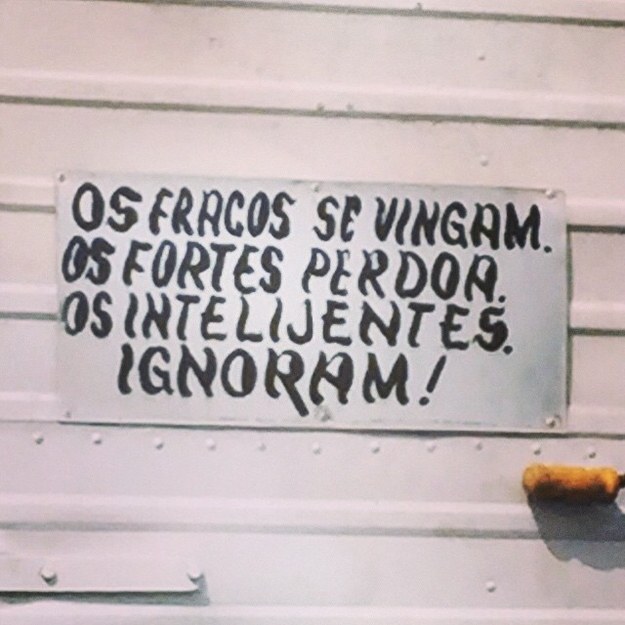 OS FRACOS SE VINGAM.
OS FORTES PERDOA.
OS INTELIJENTES.
IGNORAM!